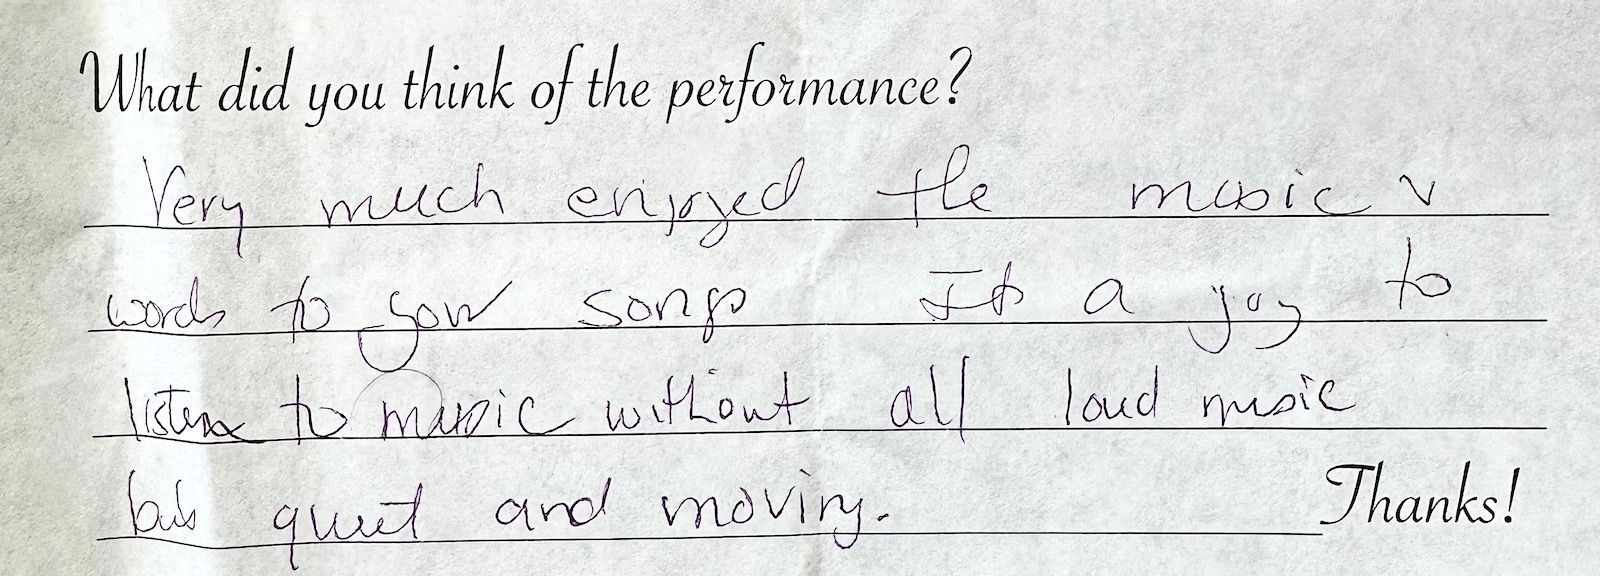 What did you think of the performance?
Very much enjoyed the music
words to your songs Its a joy to
listen to music without all loud music
but quiet and moving.
Thanks!